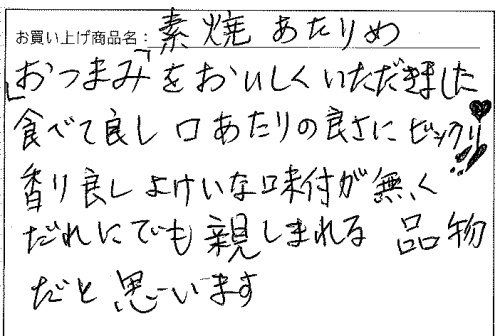 お買い上げ商品名：素焼あたりめ
「おつまみ」をおいしくいただきました
食べて良し 口あたりの良さにビックリ!!
香り良し よけいな味付が無く
だれにでも親しまれる 品物
だと思います